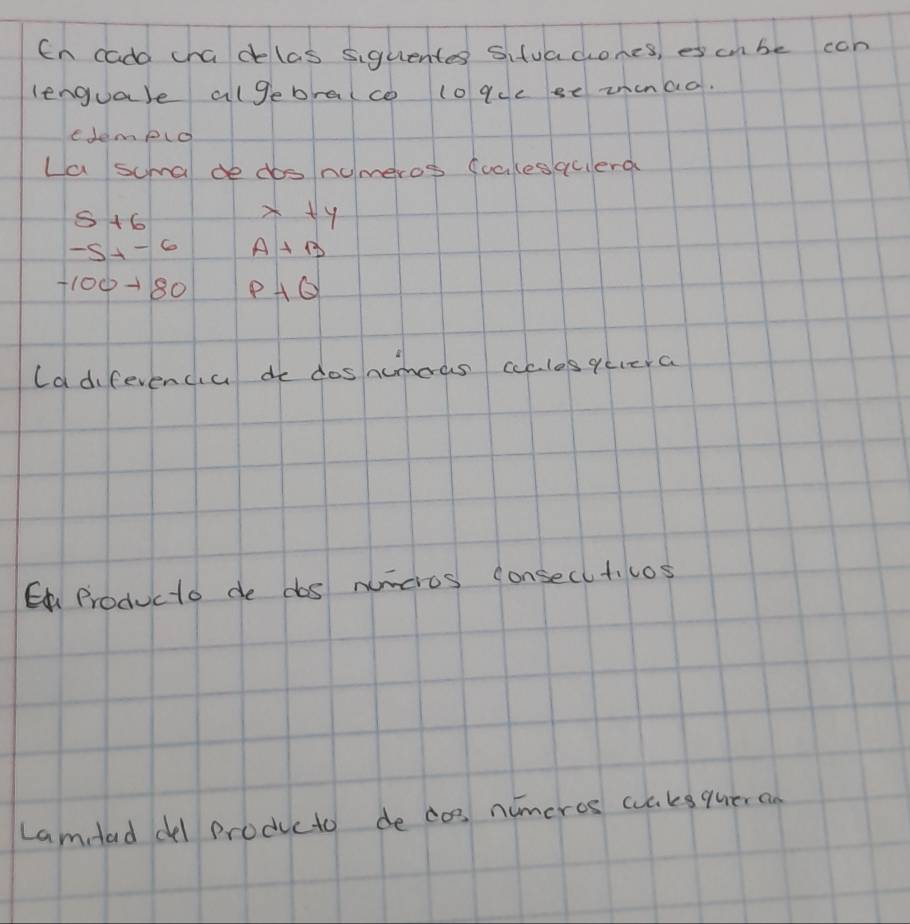 En cada una de las siguientes situaciones, escribe con
lenguaje algebraico lo que se enuncia.
ejemplo
La suma de dos numeros cualesquiera
5+6 x+y
-5+-6 A+B
-100+80 P+Q
La diferencia de dos números cualesquiera
El Producto de dos números consecutivos
La mitad del Producto de dos números cualesquieran